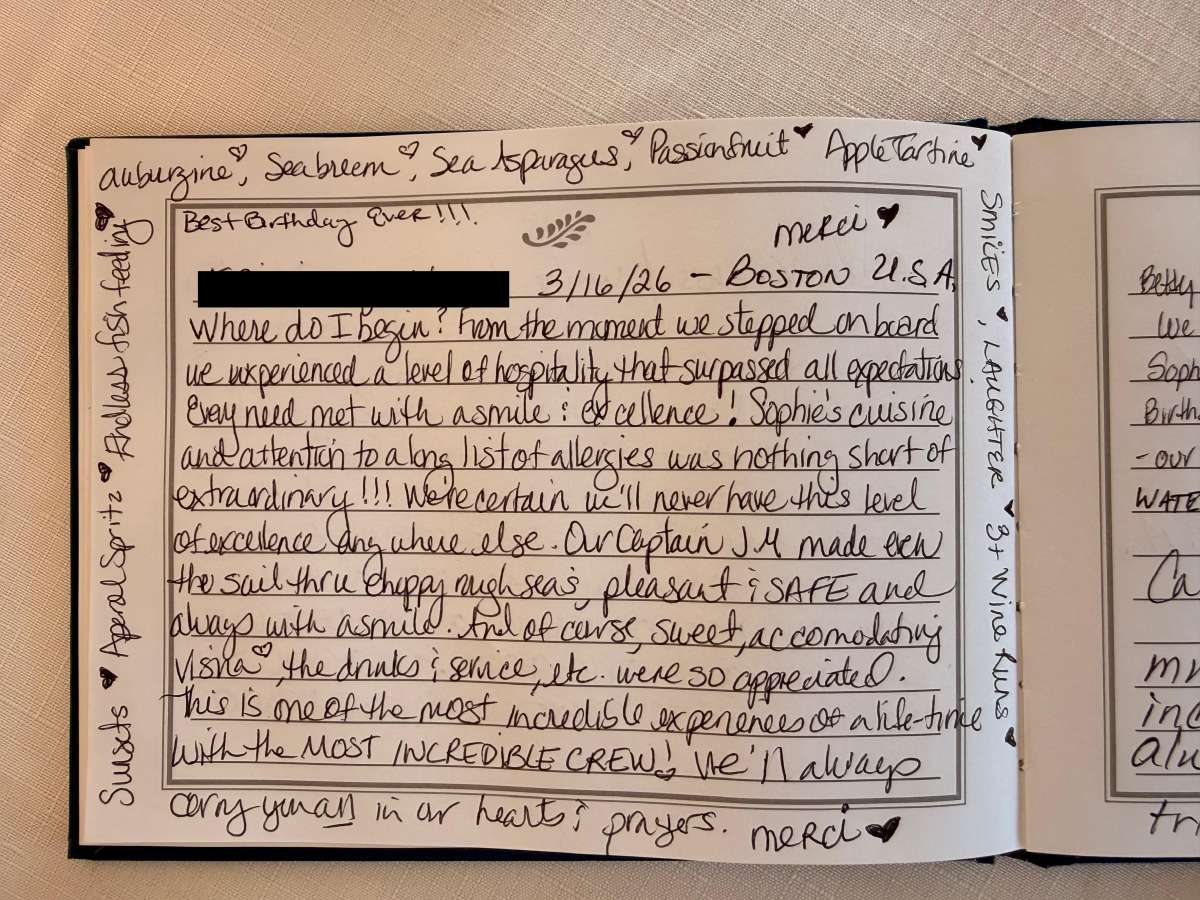 auburzine, Seabreem, Sea Asparagus, Passionfruit AppleTartine
Best Birthday Ever!!!
merci
3/16/26 - BOSTON U.S.A.
Where do I begin? From the moment we stepped on board
we experienced a level of hospitality that surpassed all expectations.
Every need met with a smile & excellence! Sophie's cuisine
and attention to a long list of allergies was nothing short of
extraordinary!!! We're certain we'll never have this level
of excellence any where else. Our Captain J.M made even
the sail thru choppy rough seas, pleasant & SAFE and
always with a smile. And of course, sweet, accomodating
, the drinks & service, etc. were so appreciated.
This is one of the most incredible experiences of a life-time
with the MOST INCREDIBLE CREW! We'll always
carry you all in our hearts & prayers. merci
Sunsets Apperal Spritz Endless fish feeding
SMILES, LAUGHTER 3+ Wine Runs
Betty
We
Soph
Birth
- our
WATE
Ca